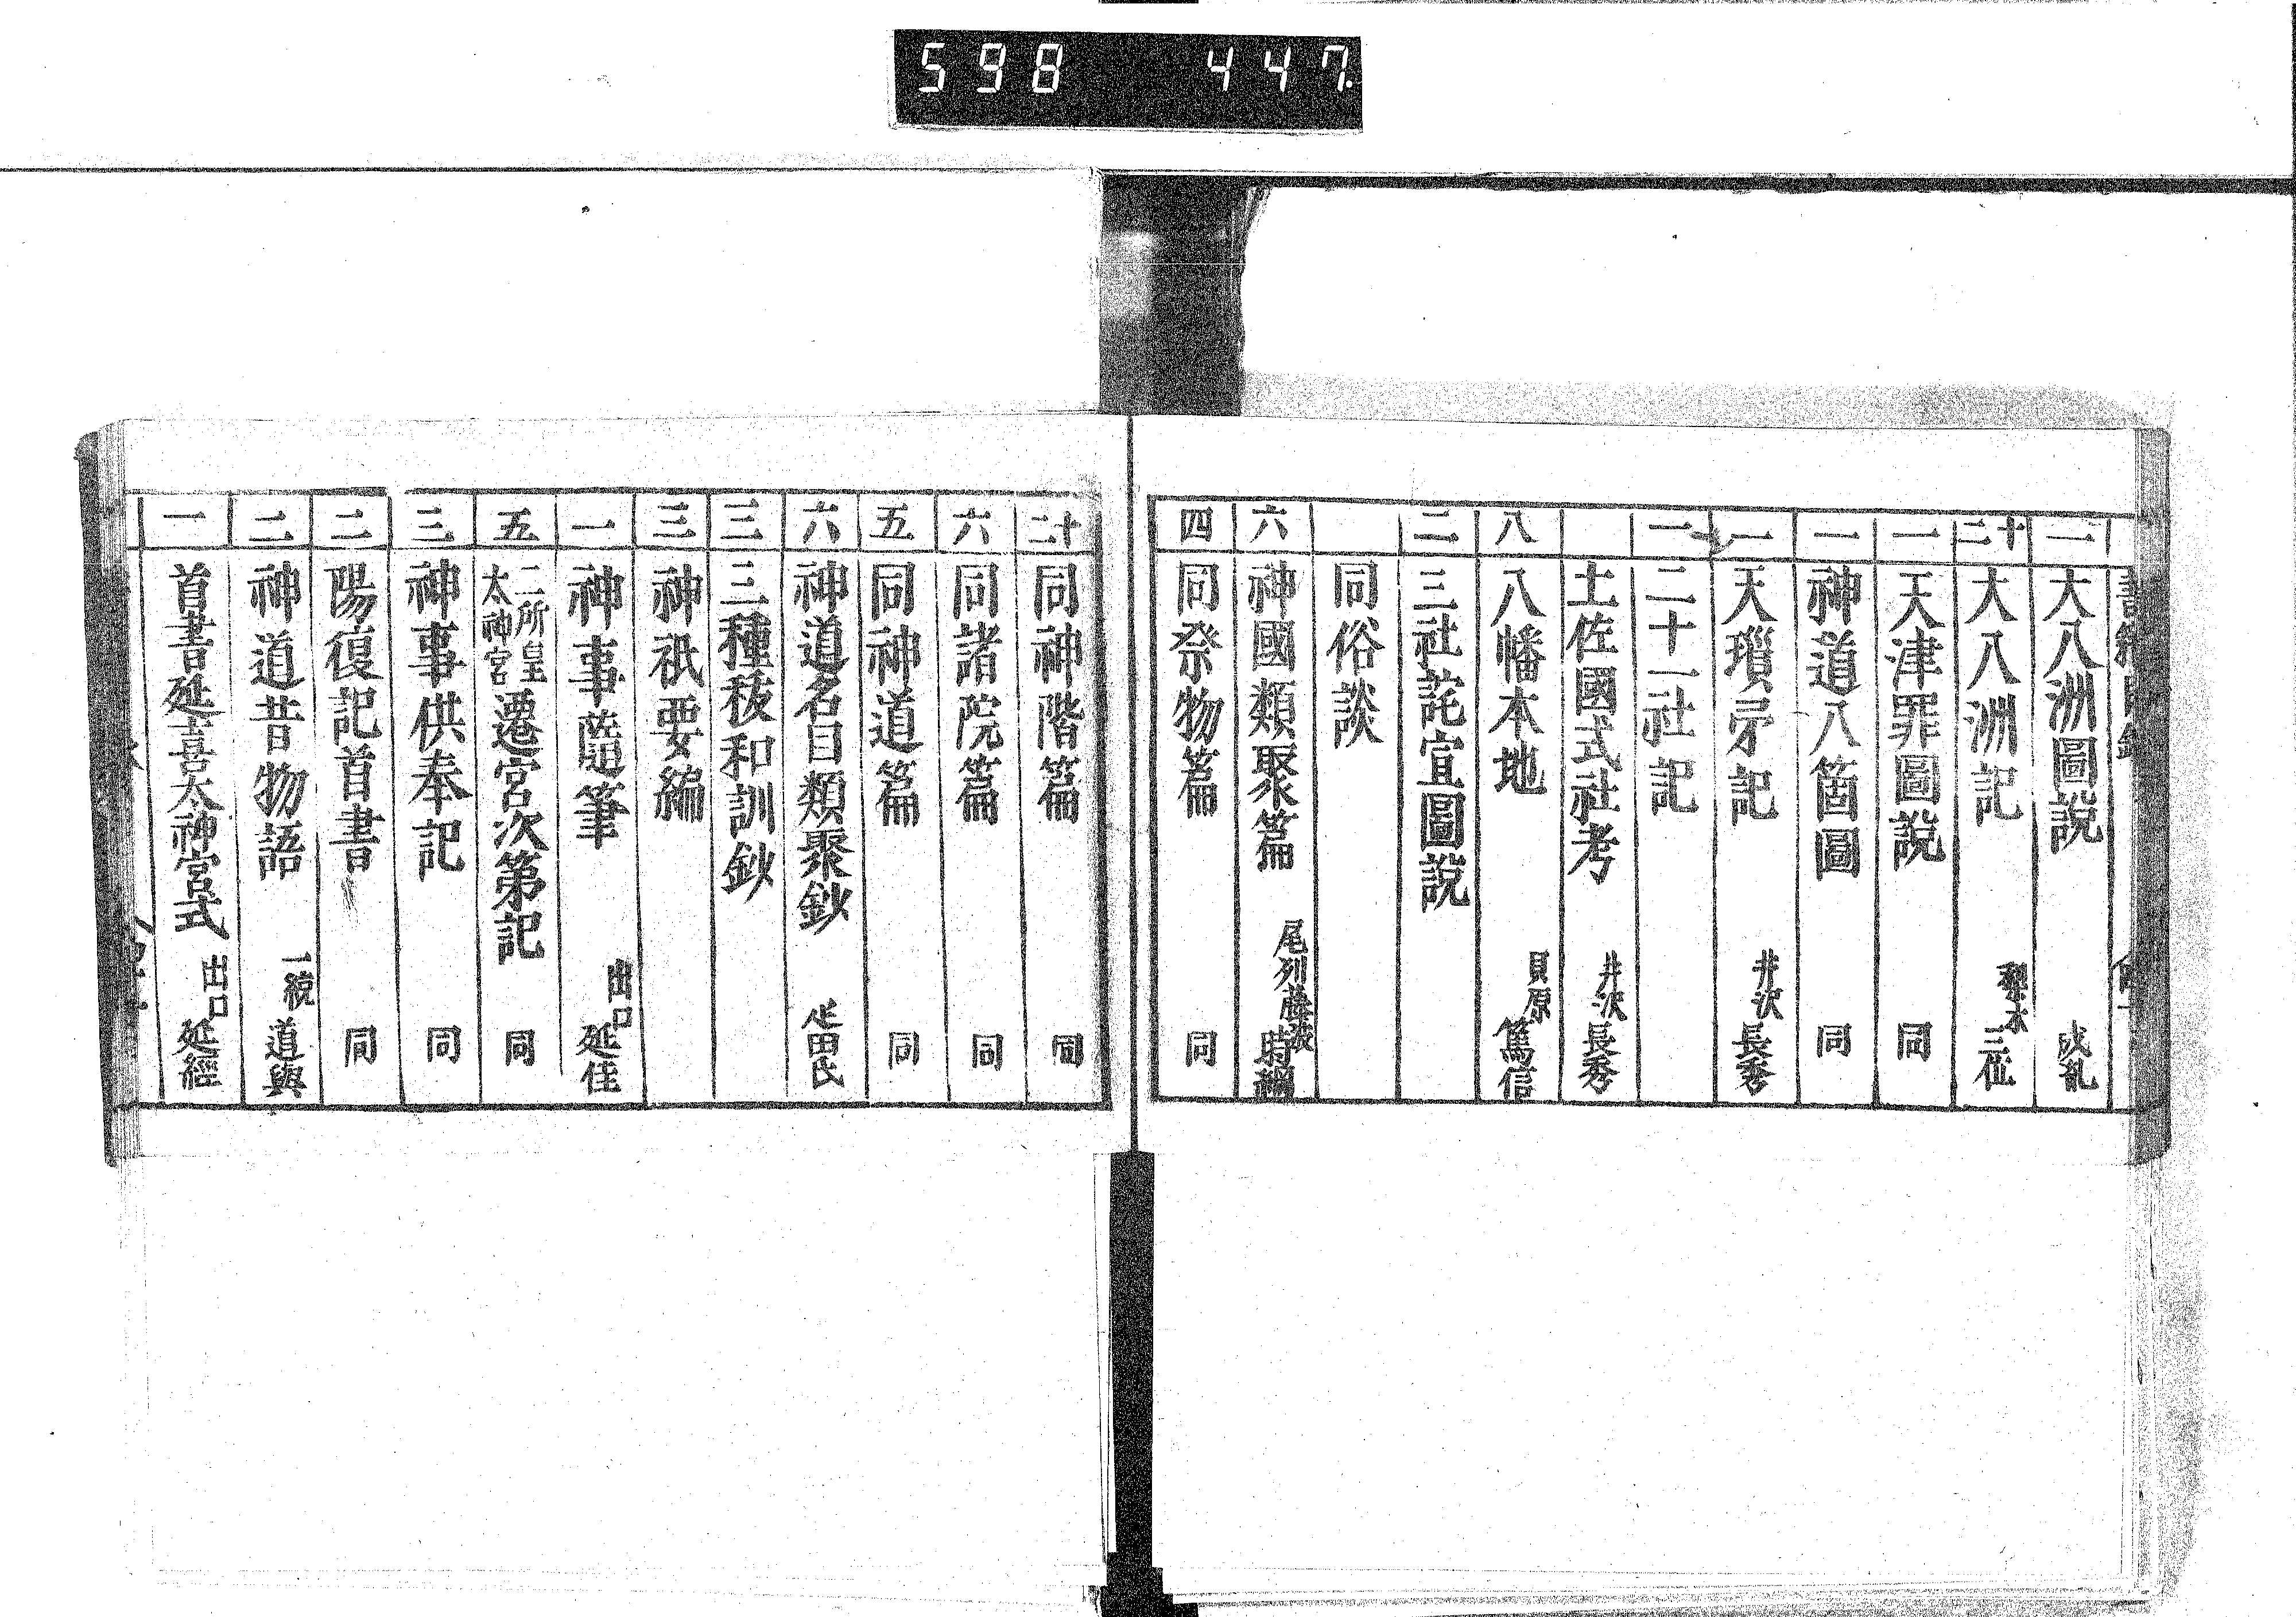 598 447.
一 大八洲圖說
十二 大八洲記 三位
一 天津罪圖說 同
一 神道八箇圖 同
一 天瓊矛記 井沢 長秀
二十一社記
土佐國式社考 井沢 長秀
八 八幡本地 貝原 篤信
二 三社託宣圖說
同俗談
六 神國類聚篇 尾列藤波 時綱
四 同祭物篇 同
十二 同神階篇 同
六 同諸院篇 同
五 同神道篇 同
六 神道名目類聚鈔
三 三種秡和訓鈔
三 神祇要編
一 神事隨筆 出口 延佳
五 二所皇太神宮遷宮次第記 同
三 神事供奉記 同
二 陽復記首書 同
二 神道昔物語 道與
一 首書延喜太神宮式 出口 延經